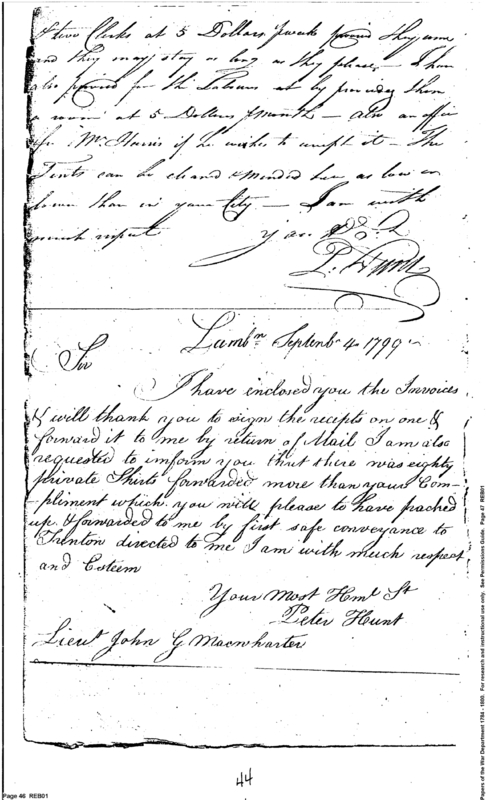 & two Clerks at 5 Dollars pweek
and they may stay as long as they please – I have
also for the by them
a room at 5 Dollars pmonth – also an office
for Mr Harris if he wishes to it – The
Tents can be cleaned & mended here as low or
lower than in your City – I am with
much respect
P. Hunt
Lambn Septembr 4 1799
Sir
I have enclosed you the Invoices
& will thank you to sign the recepts on one &
forward it to me by return of Mail I am also
requested to inform you that there was eighty
private Shirts forwarded more than your Com-
-pliment which you will please to have packed
up & forwarded to me by first safe conveyance to
Trenton directed to me I am with much respect
and Esteem
Your Most Hmle St
Peter Hunt
Lieut John G Macwharter
44
Page 46 REB01
Papers of the War Department 1784 - 1800. For research and instructional use only. See Permissions Guide. Page 47 REB01